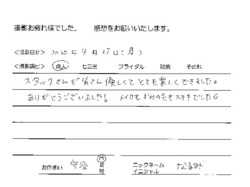 撮影お疲れ様でした。 感想をお願いいたします。
<撮影日> 2020年4月27日(月)
<撮影種> 成人 七五三 ブライダル 記念 その他
スタッフさんが皆さん優しくてとても楽しくできました。
ありがとうございました! メイクもお好みでステキでした
お住まい 守谷 市
ニックネーム
イニシャル なるみ